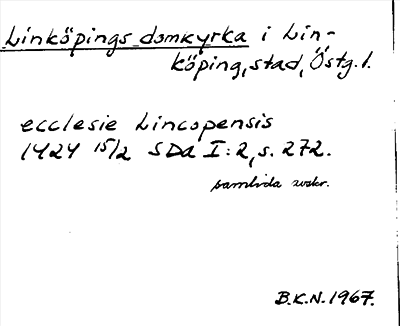 Linköpings domkyrka i Lin-
köping, stad, Östg. l.
ecclesie Lincopensis
1424 15/2 SDa I:2, s. 272.
samtida avskr.
B.K.N. 1967.